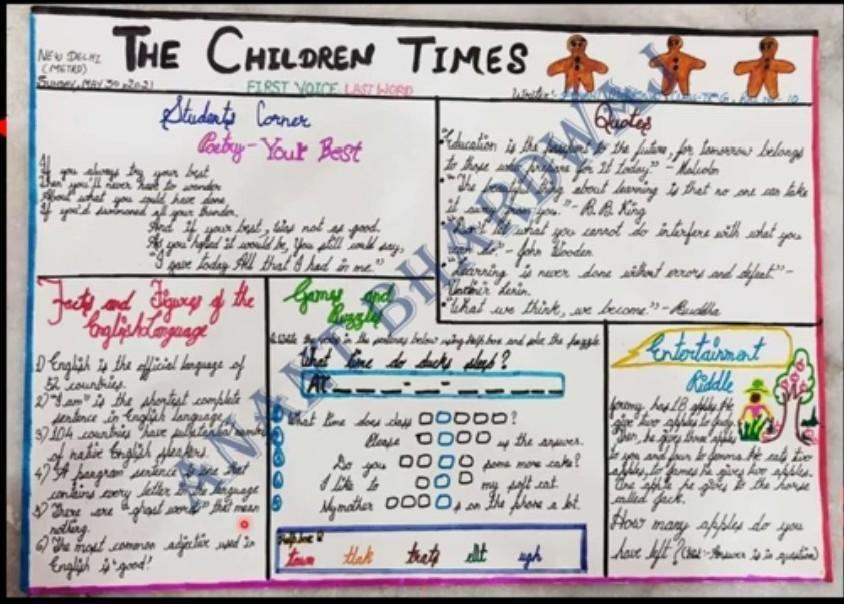 THE CHILDREN TIMES
NEW DELHI
(METRO)
SUNDAY, MAY 30, 2021
FIRST VOICE LAST WORD
Writer:-
Students Corner
Poetry - Your Best
If you always try your best
Then you'll never have to wonder
About what you could have done
If you'd summoned all your thunder.
And if your best, was not as good.
As you hoped it would be, You still could say,
"I gave today All that I had in me."
Quotes
"Education is the passport to the future, for tomorrow belongs
to those who prepare for it today." - Malcolm
"The beautiful thing about learning is that no one can take
it away from you." - B.B. King
"Don't let what you cannot do interfere with what you
can do." - John Wooden.
"Learning is never done without errors and defeat." -
Vladimir Lenin.
"What we think, we become." - Buddha
Facts and Figures of the
English Language
1) English is the official language of
52 countries.
2) "I am" is the shortest complete
sentence in English language.
3) 104 countries have substantial number
of native English speakers.
4) A pangram sentence is one that
contains every letter in the language
5) There are "ghost words" that mean
nothing.
6) The most common adjective used in
English is "good!"
Games and
Puzzles
using Help box and solve the puzzle
What time do ducks sleep?
AT
What time does class ?
Please us the answer.
Do you some more cake?
I like to my soft cat.
My mother s on the phone a lot.
Help box
town tlak teats elt ugh
Entertainment
Riddle
Jeremy has 18 apples. He
give two apples to Judy.
Then, he gives three apples
to you and four to Jemma. He eats two
apples, to James he gives two apples.
One apple he gives to the horse
called Jack.
How many apples do you
have left? (Hint:- Answer is in question)
ANANT BHARDWAJ